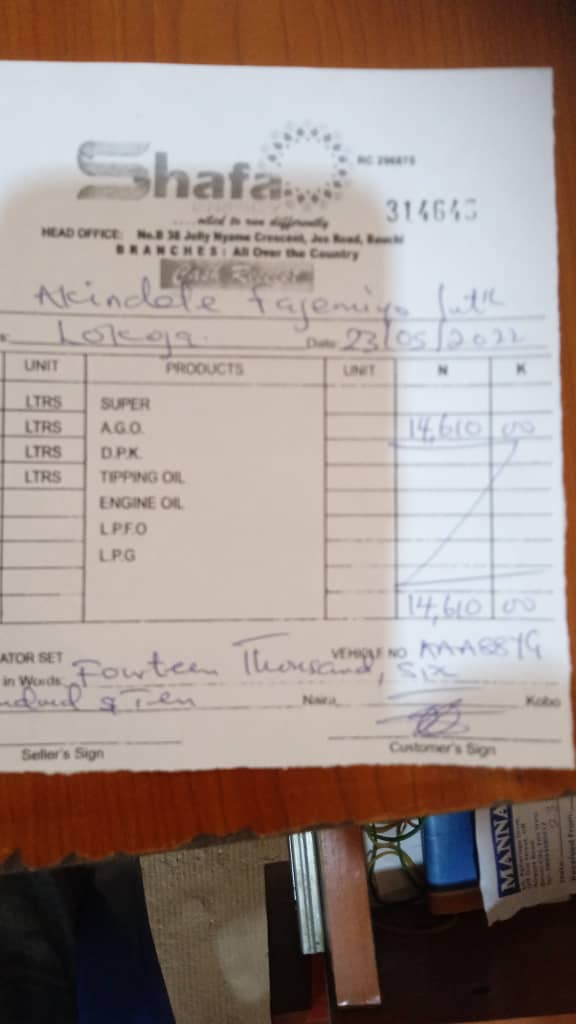 Shafa
RC 296875
....oiled to run differently
314645
HEAD OFFICE: No.B 38 Jolly Nyame Crescent, Jos Road, Bauchi
BRANCHES: All Over the Country
Cash Receipt
Akindele Fajemiyo
Lokoja. Date: 23/05/2022
UNIT PRODUCTS UNIT N K
LTRS SUPER
LTRS A.G.O. 14,610 00
LTRS D.P.K.
LTRS TIPPING OIL
ENGINE OIL
L.P.F.O
L.P.G
14,610 00
ATOR SET VEHICLE NO
in Words: Fourteen Thousand, Six
ndard & Ten Naira Kobo
Seller's Sign Customer's Sign
MANNA
Date:
Received From